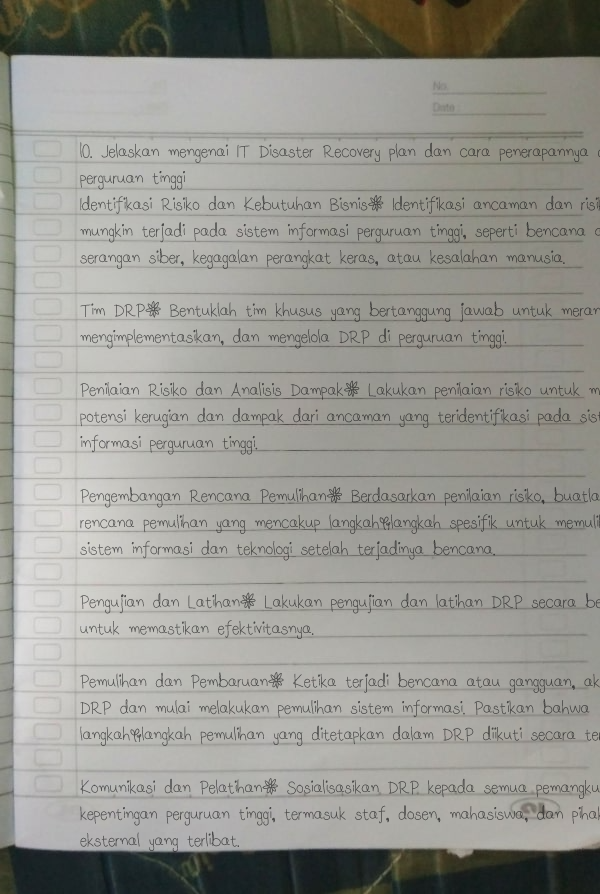 No.
Date :
10. Jelaskan mengenai IT Disaster Recovery plan dan cara penerapannya
perguruan tinggi
Identifikasi Risiko dan Kebutuhan Bisnis❋ Identifikasi ancaman dan risi
mungkin terjadi pada sistem informasi perguruan tinggi, seperti bencana
serangan siber, kegagalan perangkat keras, atau kesalahan manusia.
Tim DRP❋ Bentuklah tim khusus yang bertanggung jawab untuk meran
mengimplementasikan, dan mengelola DRP di perguruan tinggi.
Penilaian Risiko dan Analisis Dampak❋ Lakukan penilaian risiko untuk m
potensi kerugian dan dampak dari ancaman yang teridentifikasi pada sist
informasi perguruan tinggi.
Pengembangan Rencana Pemulihan❋ Berdasarkan penilaian risiko, buatla
rencana pemulihan yang mencakup langkah❋langkah spesifik untuk memuli
sistem informasi dan teknologi setelah terjadinya bencana.
Pengujian dan Latihan❋ Lakukan pengujian dan latihan DRP secara be
untuk memastikan efektivitasnya.
Pemulihan dan Pembaruan❋ Ketika terjadi bencana atau gangguan, ak
DRP dan mulai melakukan pemulihan sistem informasi. Pastikan bahwa
langkah❋langkah pemulihan yang ditetapkan dalam DRP diikuti secara te
Komunikasi dan Pelatihan❋ Sosialisasikan DRP kepada semua pemangku
kepentingan perguruan tinggi, termasuk staf, dosen, mahasiswa, dan pihak
eksternal yang terlibat.